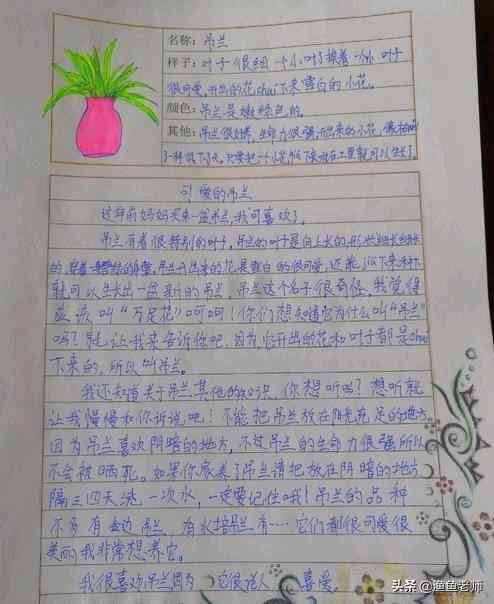 名称：吊兰
样子：叶子很细一个小叶子挨着一个小叶子
很可爱,开出的花chui下来雪白的小花。
颜色：吊兰是嫩绿色的。
其他：吊兰很好养,生命力很强,开出来的小花,像
可爱的吊兰
这年前妈妈买来一盆吊兰,我可喜欢了。
吊兰有着很特别的叶子,吊兰的叶子是向上长的,形状细长细长
的,吊兰开出来的花是雪白的很可爱,还能
就可以生长出一盆新的吊兰,吊兰这个名子很奇怪,我觉得
应该叫“万足花”呵呵!你们想知道它为什么叫“吊兰”
吗?就让我来告诉你吧,因为它开出的花和叶子都是chui
下来的,所以叫吊兰。
我还知道关于吊兰其他的知识,你想听吗?想听就
让我慢慢和你诉说吧!不能把吊兰放在阳光充足的地方,
因为吊兰喜欢阴暗的地方,不过吊兰的生命力很强所以
不会被晒死。如果你家养了吊兰请把放在阴暗的地方
隔三四天浇一次水,一定要记住哦!吊兰的品种
不多有金边吊兰,有水培吊兰有……它们都很可爱很
美丽,我非常想养它。
我很喜欢吊兰因为它很逗人喜爱。
头条 @渔鱼老师